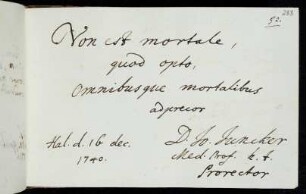 203
52.
Non est mortale,
quod opto,
omnibusque mortalibus
adprecor
Hal. d. 16 dec.
1740.
D. Jo. Juncker
Med. Prof. h. t.
Prorector